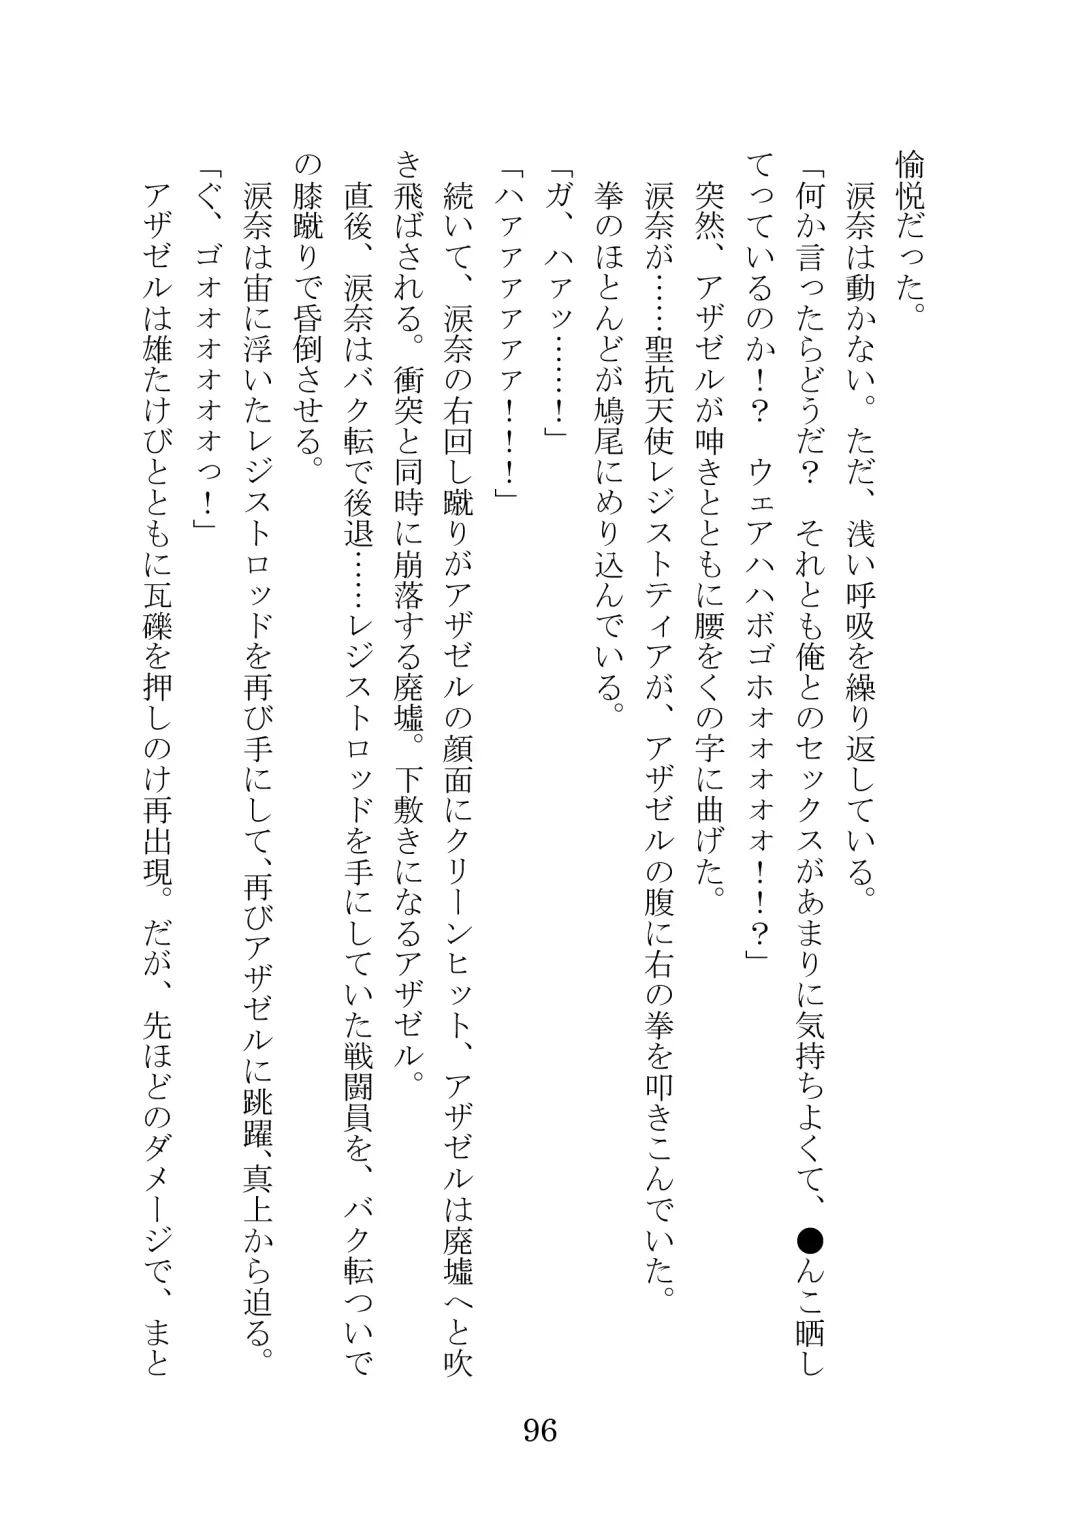 愉悦だった。
　涙奈は動かない。ただ、浅い呼吸を繰り返している。
「何か言ったらどうだ？　それとも俺とのセックスがあまりに気持ちよくて、●んこ晒し
てっているのか！？　ウェアハハボゴホォォォォォ！！？」
　突然、アザゼルが呻きとともに腰をくの字に曲げた。
　涙奈が……聖抗天使レジストティアが、アザゼルの腹に右の拳を叩きこんでいた。
　拳のほとんどが鳩尾にめり込んでいる。
「ガ、ハァッ……！」
「ハァァァァァァ！！！」
　続いて、涙奈の右回し蹴りがアザゼルの顔面にクリーンヒット、アザゼルは廃墟へと吹
き飛ばされる。衝突と同時に崩落する廃墟。下敷きになるアザゼル。
　直後、涙奈はバク転で後退……レジストロッドを手にしていた戦闘員を、バク転ついで
の膝蹴りで昏倒させる。
　涙奈は宙に浮いたレジストロッドを再び手にして、再びアザゼルに跳躍、真上から迫る。
「ぐ、ゴォォォォォォっ！」
　アザゼルは雄たけびとともに瓦礫を押しのけ再出現。だが、先ほどのダメージで、まと
96